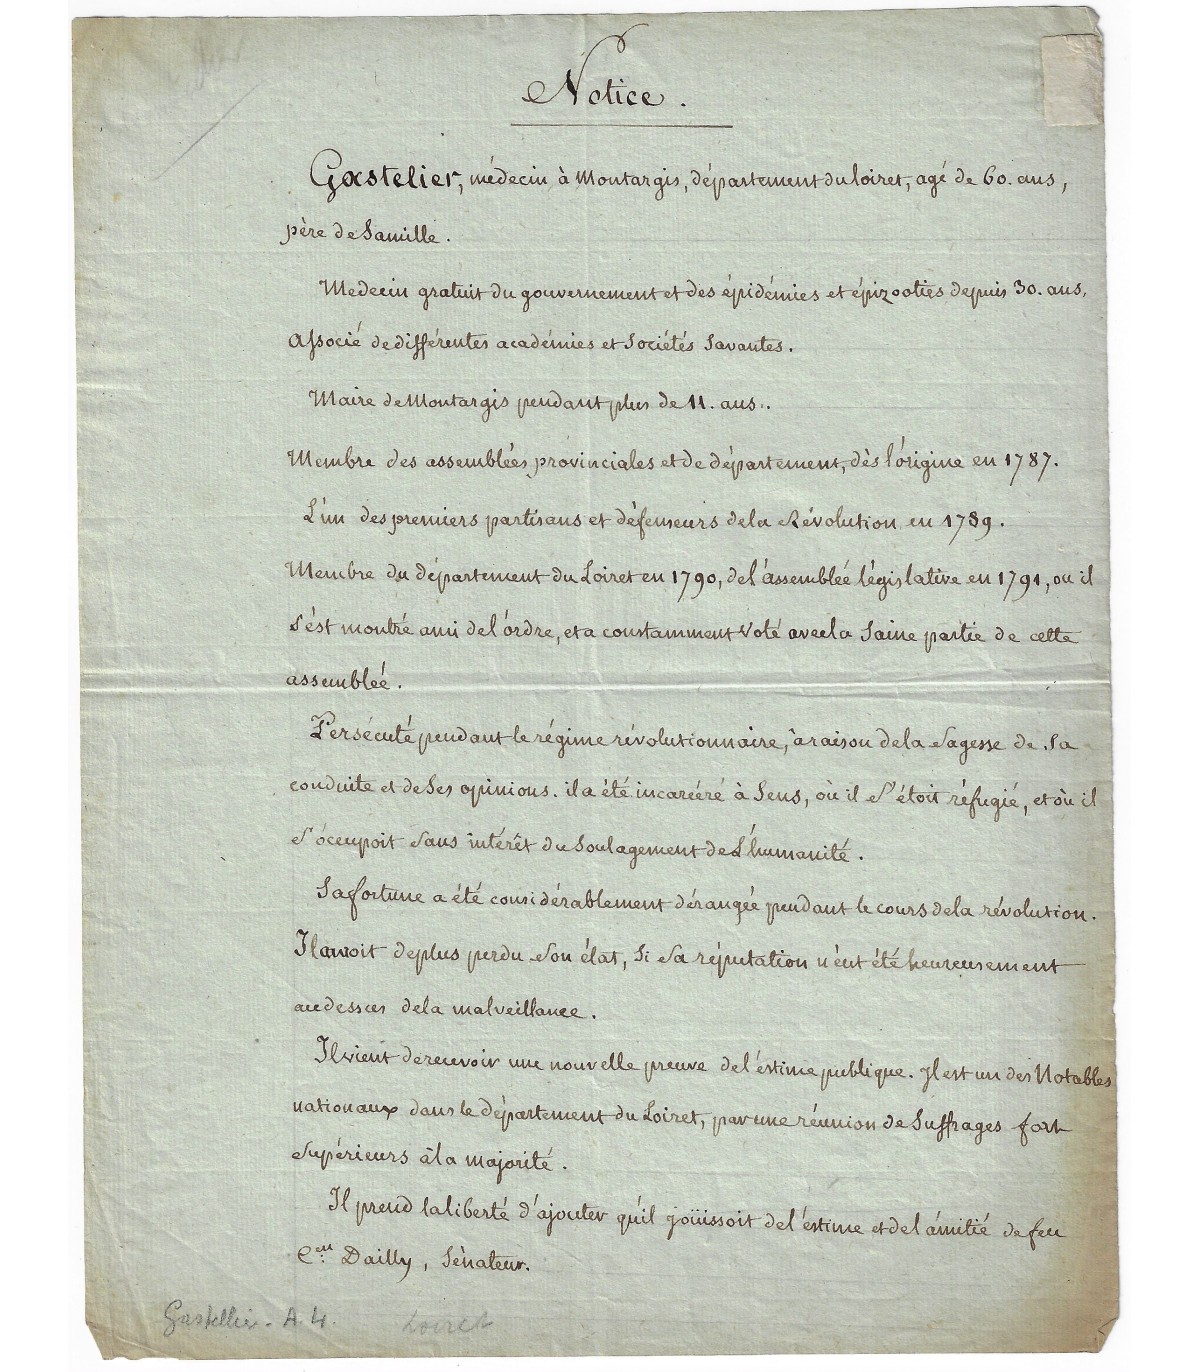 Notice.
Gastelier, médecin à Montargis, département du loiret, agé de 60. ans,
père de famille.
Medecin gratuit du gouvernement et des épidémies et épizooties depuis 30. ans,
Associé de différentes académies et Sociétés Savantes.
Maire de Montargis pendant plus de 11. ans.
Membre des assemblées provinciales et de département, dès l'origine en 1787.
L'un des premiers partisans et défenseurs de la Révolution en 1789.
Membre du département du Loiret en 1790, de l'assemblée législative en 1791, ou il
s'est montré ami de l'ordre, et a constamment voté avec la Saine partie de cette
assemblée.
Persécuté pendant le régime révolutionnaire, à raison de la Sagesse de Sa
conduite et de Ses opinions. il a été incarcéré à Sens, où il S'étoit réfugié, et où il
S'occupoit Sans intérêt du Soulagement de L'humanité.
Sa fortune a été considérablement dérangée pendant le cours de la révolution.
Il auroit de plus perdu Son état, Si Sa réputation n'eut été heureusement
au dessus de la malveillance.
Il vient de recevoir une nouvelle preuve de l'estime publique. Il est un des Notables
nationaux dans le département du Loiret, par une réunion de Suffrages fort
Supérieurs à la majorité.
Il prend la liberté d'ajouter qu'il joüissoit de l'estime et de l'amitié de feu
Cen. Dailly, Sénateur.
Gastellier - A 4. Loiret